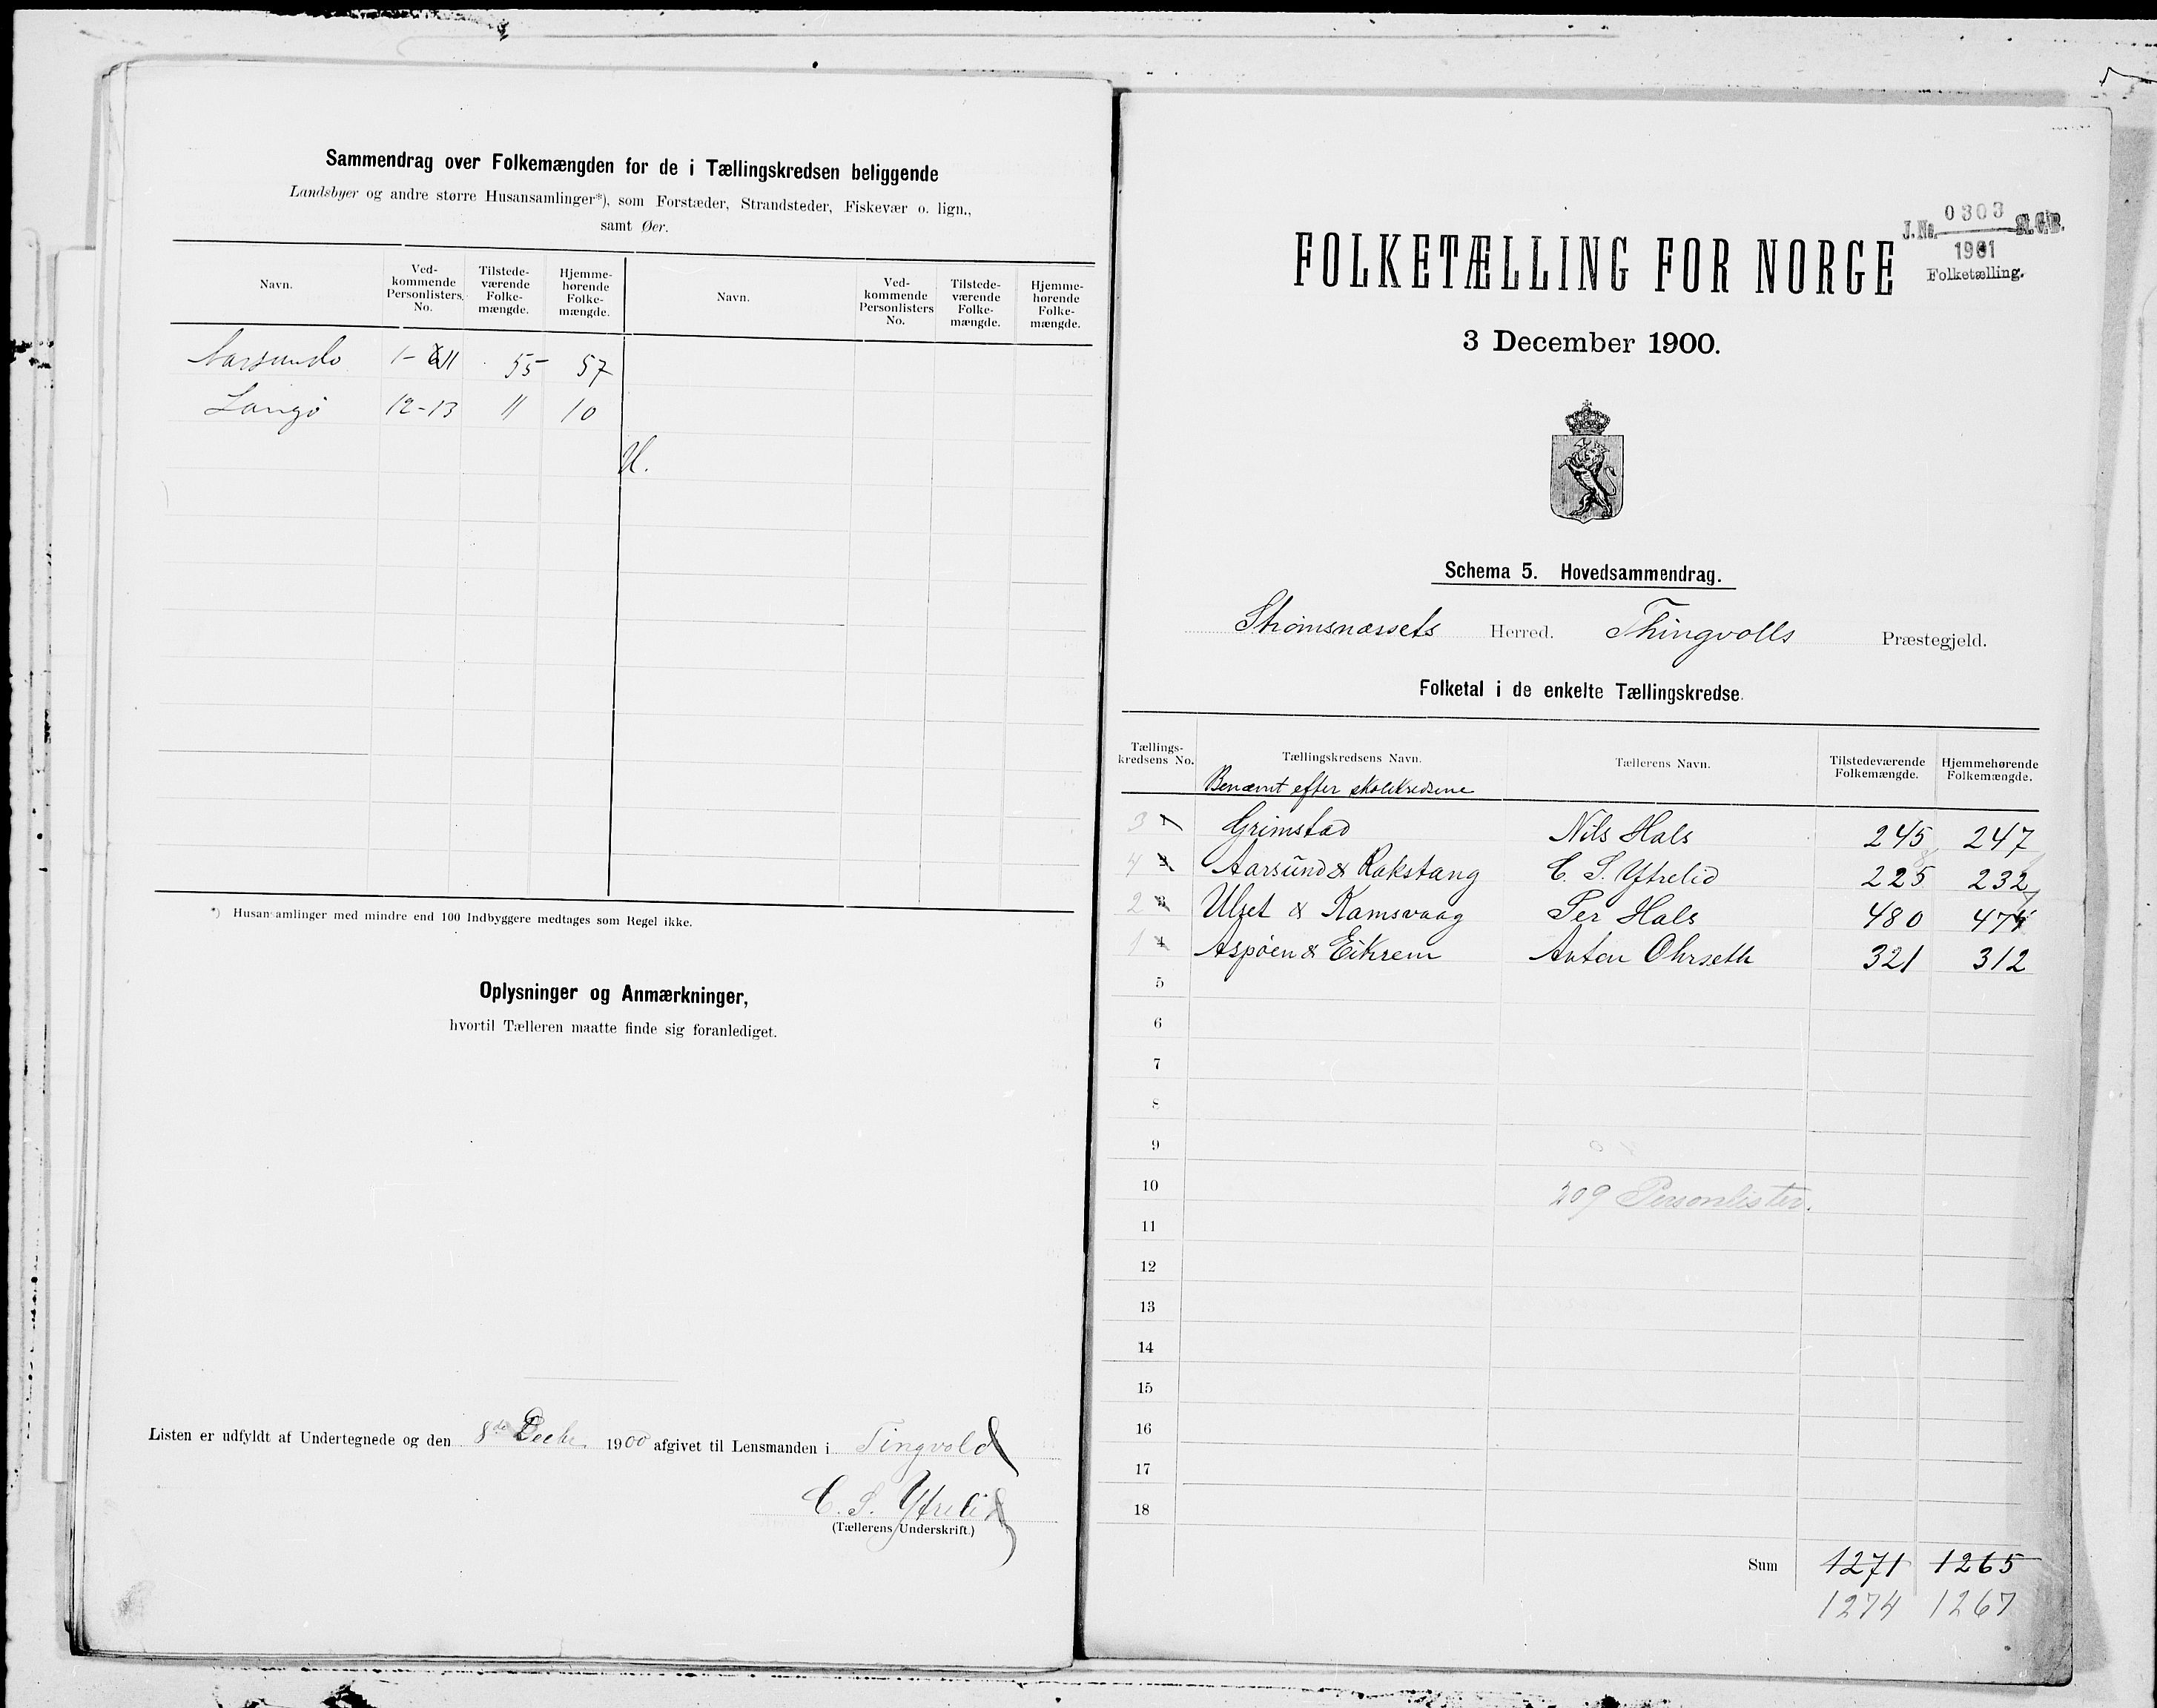 Sammendrag over Folkemængden for de i Tællingskredsen beliggende
Landsbyer og andre større Husansamlinger*), som Forstæder, Strandsteder, Fiskevær o. lign.,
samt Øer.
Navn. Ved-kommende Personlisters No. Tilstede-værende Folke-mængde. Hjemme-hørende Folke-mængde. Navn. Ved-kommende Personlisters No. Tilstede-værende Folke-mængde. Hjemme-hørende Folke-mængde.
1-11 55 57
Langö 12-13 11 10
*) Husansamlinger med mindre end 100 Indbyggere medtages som Regel ikke.
Oplysninger og Anmærkninger,
hvortil Tælleren maatte finde sig foranlediget.
Listen er udfyldt af Undertegnede og den 8de Decbr. 1900 afgivet til Lensmanden i Tingvold
C. S. Ytrelid
(Tællerens Underskrift.)
J. No. 0303 St. C. B.
1901
Folketælling.
FOLKETÆLLING FOR NORGE
3 December 1900.
Schema 5. Hovedsammendrag.
Strømsnæssets Herred. Thingvolls Præstegjeld.
Folketal i de enkelte Tællingskredse.
Tællings-kredsens No. Tællingskredsens Navn. Tællerens Navn. Tilstedeværende Folkemængde. Hjemmehørende Folkemængde.
Benævnt efter skolekredsene
3 1 Grimstad Nils Hals 245 247
4 2 Aarsund & Rakstang C. S. Ytrelid 225 232
2 3 Ulset & Ramsvaag Per Hals 480 474
1 4 Aspöen & Eikrem Anton Ohrseth 321 312
5
6
7
8
9
10
209 Personlister.
11
12
13
14
15
16
17
18
Sum 1271 1265
1274 1267